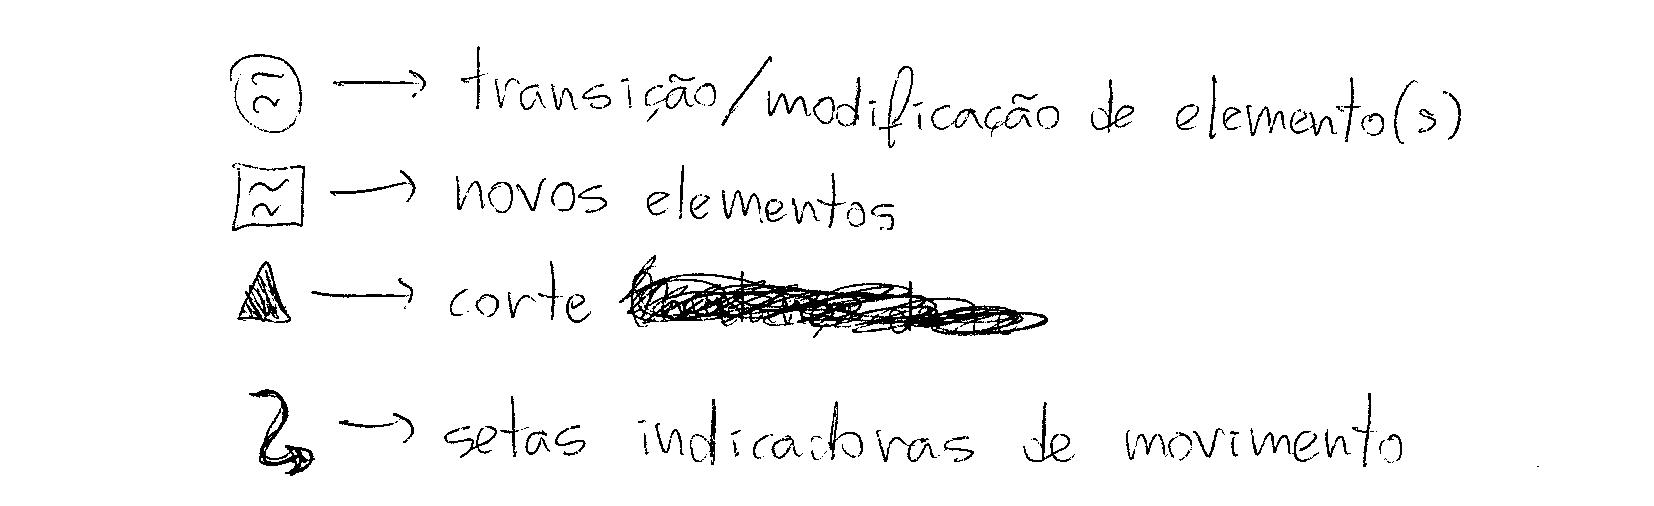 → transição/modificação de elemento(s)
→ novos elementos
→ corte
→ setas indicadoras de movimento